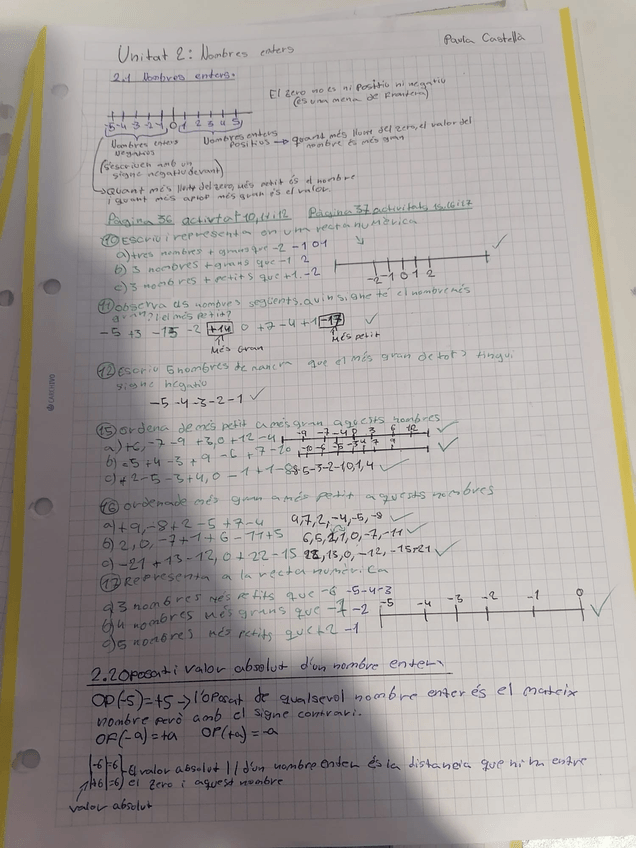 Paula Castellà
Unitat 2: Nombres enters
2.1 Nombres enters.
El zero no es ni positiu ni negatiu
(és una mena de frontera)
-5 -4 -3 -2 -1 0 1 2 3 4 5
Nombres enters negatius
Nombres enters positius → quant més lluny del zero, el valor del nombre és més gran
(s'escriuen amb un signe negatiu devant)
→ Quant més lluny del zero, més petit és el nombre
i quant més aprop més gran és el valor.
Pàgina 36 activitat 10, 11, 12 Pàgina 37 activitats 15, 16 i 17
10 Escriu i representa en una recta numèrica
a) tres nombres + grans que -2 -1 0 1
b) 3 nombres + grans que -1 2
c) 3 nombres + petits que +1. -2
-2 -1 0 1 2
11 observa els nombres següents, quin signe té el nombre més
gran? i el més petit?
-5 +3 -15 -2 +14 0 +7 -4 +1 -17
Més gran
Més petit
12 Escriu 5 nombres de manera que el més gran de tots tingui
signe negatiu
-5 -4 -3 -2 -1
15 ordena de més petit a més gran aquests nombres
a) +6, -7 -9 +3, 0 +12 -4 -9 -7 -4 0 3 6 12
b) -5 +4 -3 +9 -6 +7 -10 -10 -6 -5 -3 4 7 9
c) +2 -5 -3 +4, 0 -1 +1 -8
16 ordena de més gran a més petit aquests nombres
a) +9, -8 +2 -5 +7 -4 9, 7, 2, -4, -5, -8
b) 2, 0, -7 +1 +6 -11 +5 6, 5, 2, 1, 0, -7, -11
c) -21 +13 -12, 0 +22 -15 22, 13, 0, -12, -15 -21
17 Representa a la recta numèrica
a) 3 nombres més petits que -6 -5 -4 -3
b) 4 nombres més grans que -7 -2
c) 5 nombres més petits que +2 -1
-5 -4 -3 -2 -1 0
2.2 Oposat i valor absolut d'un nombre enter.
OP(-5)=+5 → l'oposat de qualsevol nombre enter és el mateix
nombre però amb el signe contrari.
OP(-a)=+a OP(+a)=-a
|-6|=6 El valor absolut || d'un nombre enter és la distancia que hi ha entre
|+6|=6 el zero i aquest nombre
valor absolut